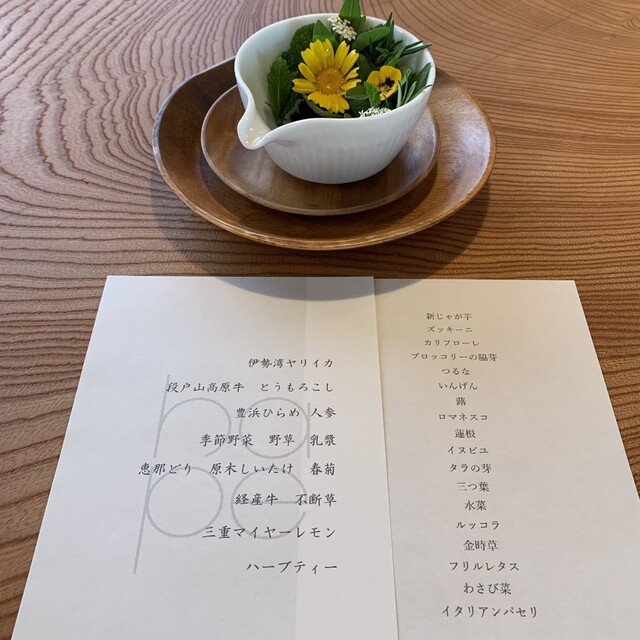 伊勢湾ヤリイカ
段戸山高原牛　とうもろこし
豊浜ひらめ　人参
季節野菜　野草　乳漿
恵那どり　原木しいたけ　春菊
経産牛　不断草
三重マイヤーレモン
ハーブティー
ha
pe
新じゃが芋
ズッキーニ
カリフローレ
ブロッコリーの脇芽
つるな
いんげん
蕗
ロマネスコ
蓮根
イヌビユ
タラの芽
三つ葉
水菜
ルッコラ
金時草
フリルレタス
わさび菜
イタリアンパセリ